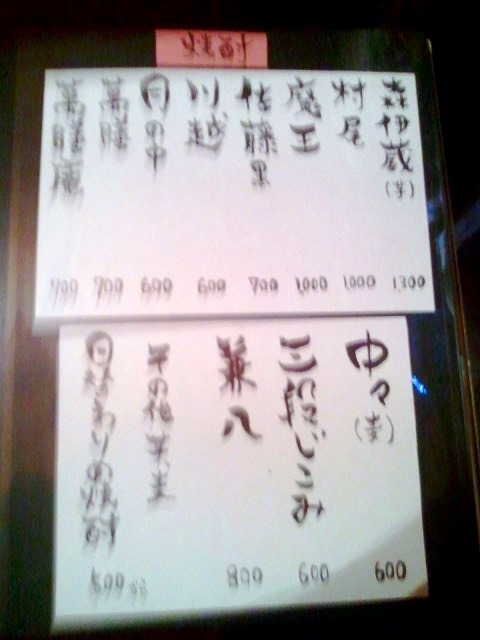 焼酎
森伊蔵(芋) 1,300
村尾 1,000
魔王 1,000
佐藤黒 700
川越 600
月の中 600
萬膳 700
萬膳庵 700
中々(麦) 600
三段じこみ 600
兼八 800
その他芋、麦
日替わりの焼酎 500から